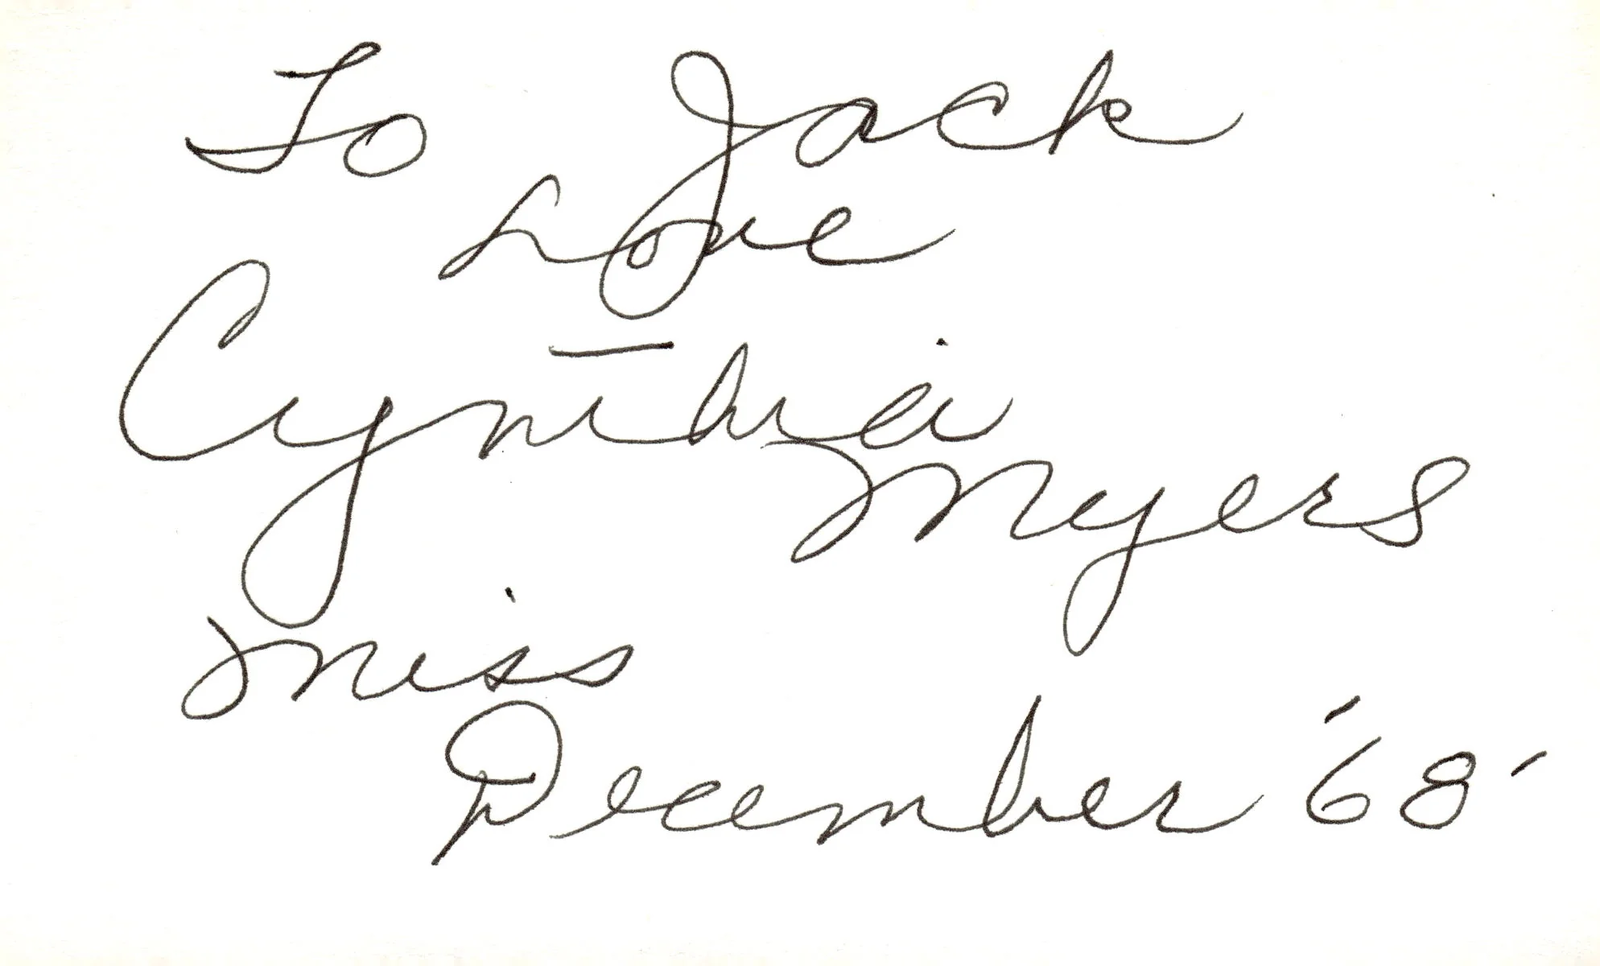 To Jack
Love
Cynthia
Myers
Miss
December '68'